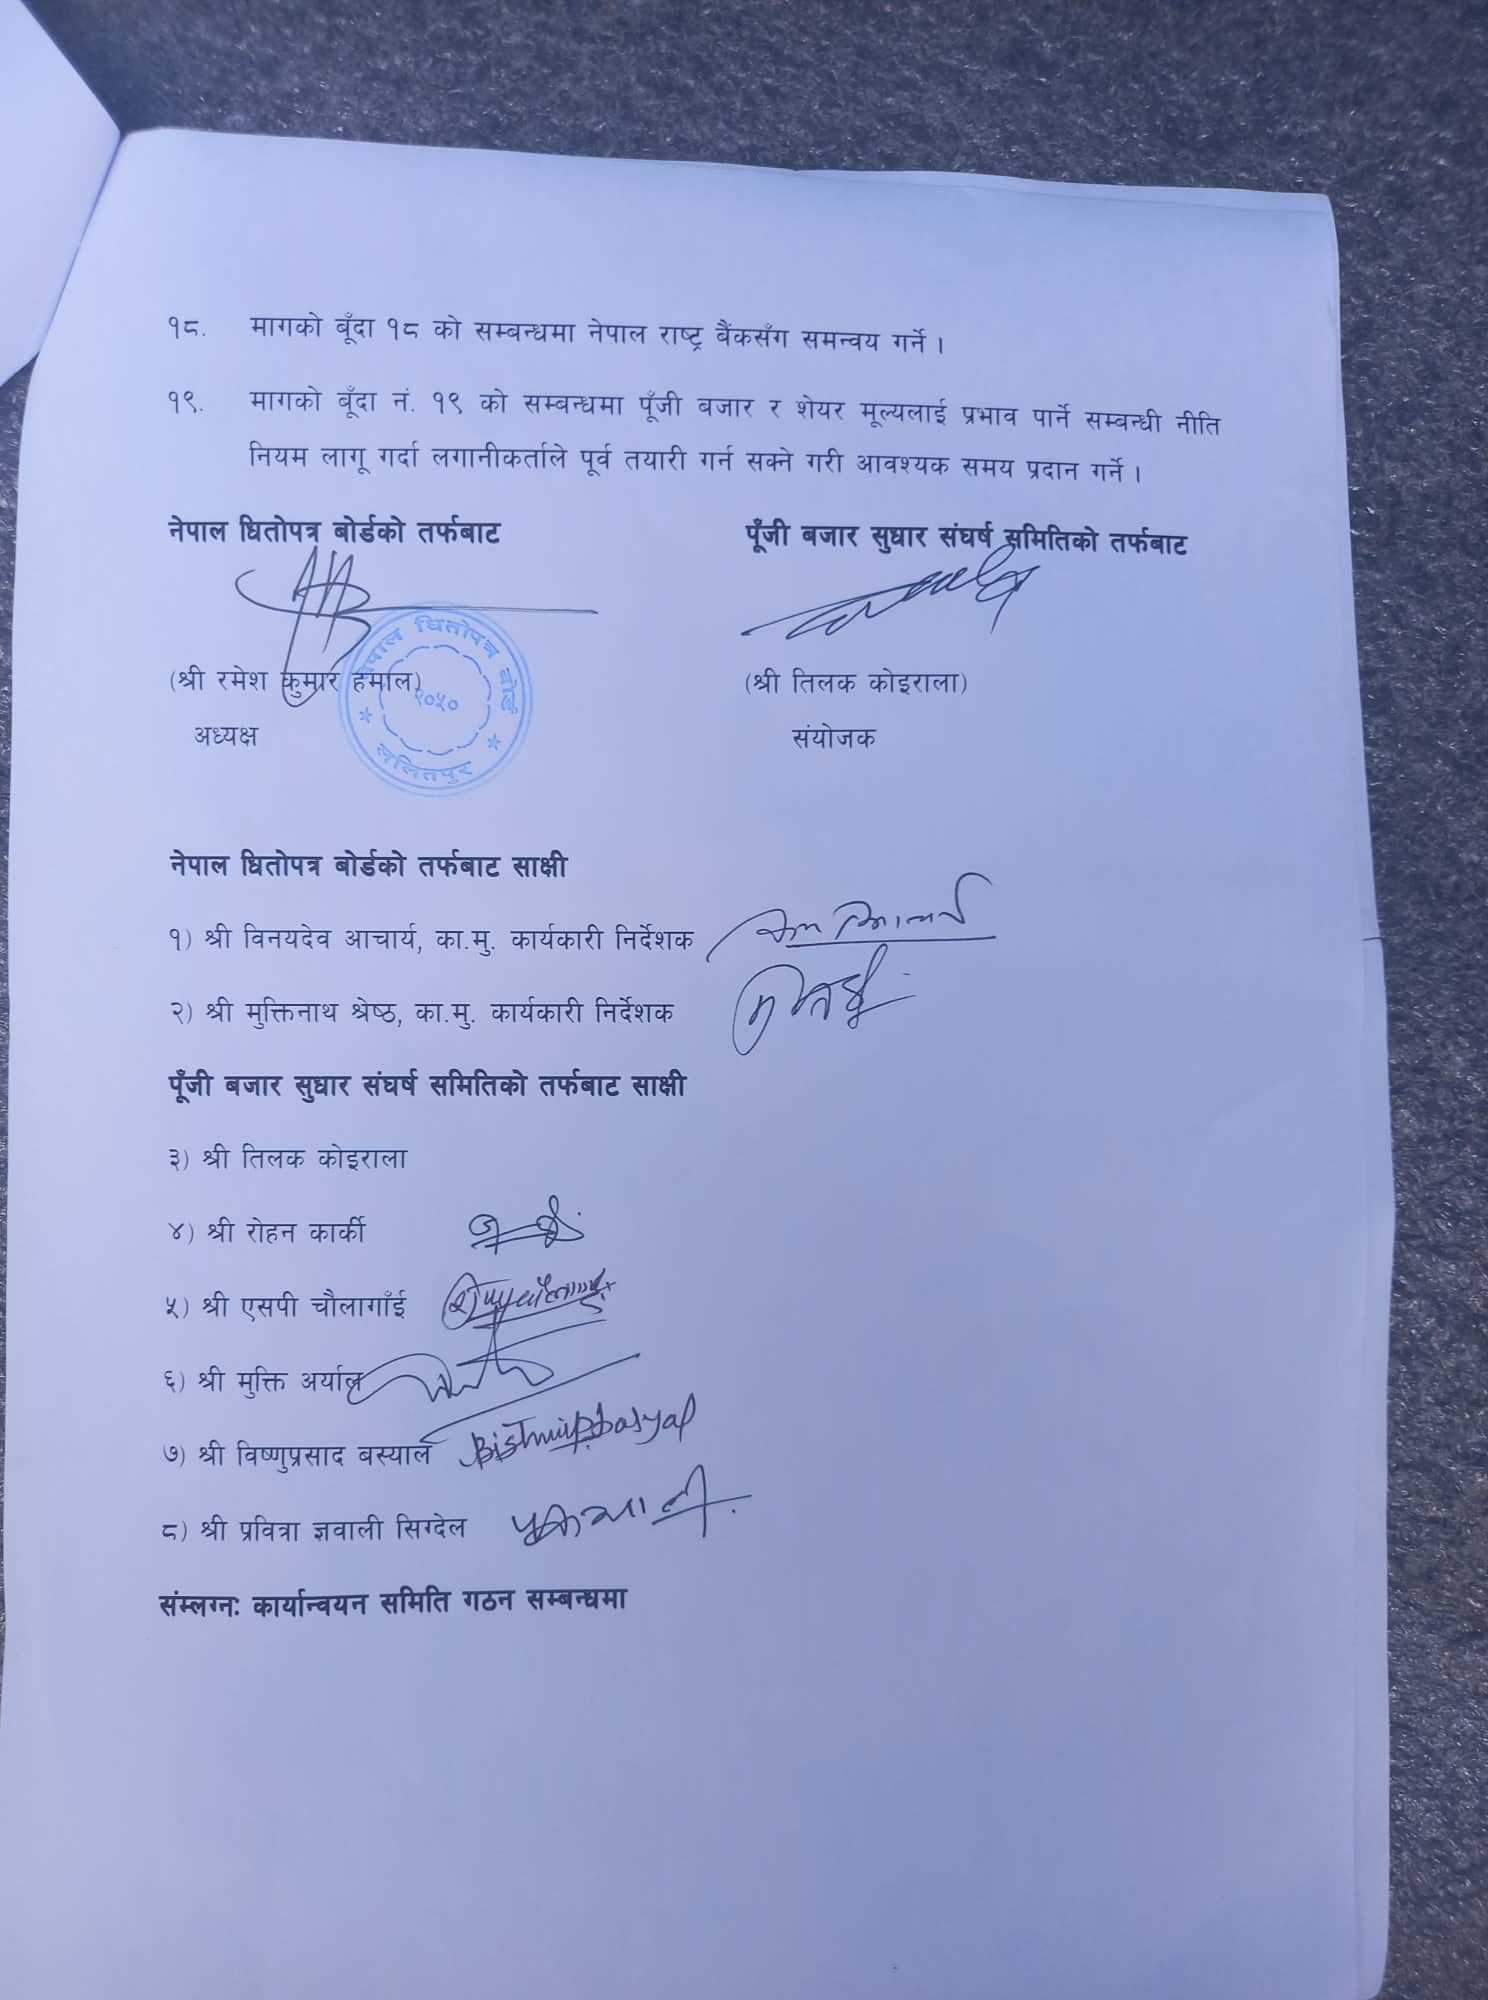 १८. मागको बूँदा १८ को सम्बन्धमा नेपाल राष्ट्र बैंकसँग समन्वय गर्ने ।
१९. मागको बूँदा नं. १९ को सम्बन्धमा पूँजी बजार र शेयर मूल्यलाई प्रभाव पार्ने सम्बन्धी नीति
नियम लागू गर्दा लगानीकर्ताले पूर्व तयारी गर्न सक्ने गरी आवश्यक समय प्रदान गर्ने ।
नेपाल धितोपत्र बोर्डको तर्फबाट
पूँजी बजार सुधार संघर्ष समितिको तर्फबाट
(श्री रमेश कुमार हमाल)
(श्री तिलक कोइराला)
अध्यक्ष
संयोजक
नेपाल धितोपत्र बोर्ड
२०५०
ललितपुर
नेपाल धितोपत्र बोर्डको तर्फबाट साक्षी
१) श्री विनयदेव आचार्य, का.मु. कार्यकारी निर्देशक
२) श्री मुक्तिनाथ श्रेष्ठ, का.मु. कार्यकारी निर्देशक
पूँजी बजार सुधार संघर्ष समितिको तर्फबाट साक्षी
३) श्री तिलक कोइराला
४) श्री रोहन कार्की
५) श्री एसपी चौलागाँई
६) श्री मुक्ति अर्याल
७) श्री विष्णुप्रसाद बस्याल
८) श्री प्रवित्रा ज्ञवाली सिग्देल
संम्लग्नः कार्यान्वयन समिति गठन सम्बन्धमा